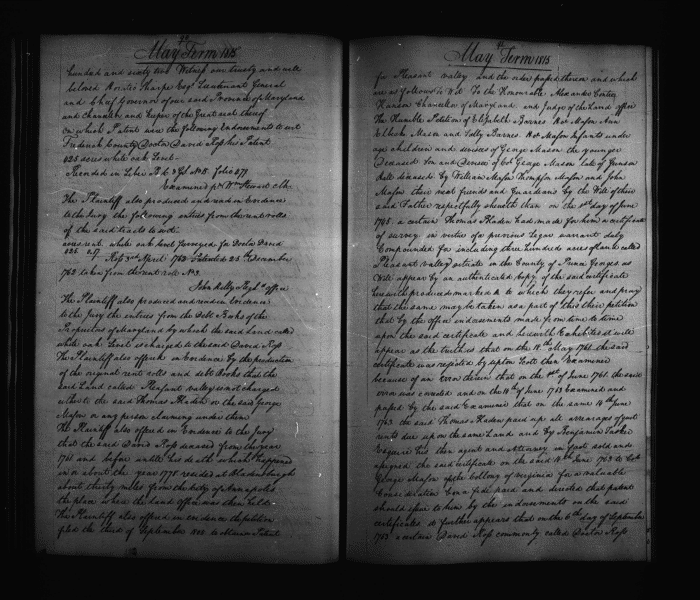 May Term 1815
hundred and sixty two Witness our trusty and well
beloved Horatio Sharpe Esqr Lieutenant General
and Chief Governor of our said Province of Maryland
and Chancellor and keeper of the Great seal thereof
On which Patent were the following Endorsements to wit
Frederick County Doctor David Ross his Patent
625 acres white oak Level
Recorded in Liber folio 277
Examined pr Wm Steuart clk
The Plaintiff also produced and read in Evidence
to the Jury the following entries from the rent rolls
of the said tracts to wit
acres rent white oak level Surveyed for Doctor David
625 Ross 3rd April 1762 Patented 25th December
1762 taken from the rent roll No 3
John Kelty office
The Plaintiff also produced and read in Evidence
to the Jury the entries from the Debt Books of the
Proprietor of Maryland by which the said Land called
white oak Level is charged to the said David Ross
The Plaintiff also offered in Evidence by the production
of the original rent rolls and debt Books that the
said Land called Pleasant valley is not charged
either to the said Thomas Fladen or the said George
Mason or any person claiming under them
The Plaintiff also offered in Evidence to the Jury
that the said David Ross deceased from the year
1761 and before until his death which happened
in or about the year 1778 resided at Bladensburgh
about thirty miles from the city of Annapolis
the place where the Land office was then held
The Plaintiff also offered in evidence the petition
filed the third of September 1802 to Patent
May Term 1815
for Pleasant valley and the order passed thereon and which
are as follows to Wit To the Honourable Alexander Contee
Hanson Chancellor of Maryland and Judge of the Land office
The Humble Petition of Elizabeth Barnes Mason Ann
Mason and Sally Barnes Mason Infants under
age children and devisees of George Mason the younger
Deceased Son and Devisee of Col George Mason late of Gunston
Hall deceased by William Mason Thompson Mason and John
Mason their next friends and Guardians by the Will of their
said Father respectfully sheweth than on the day of June
a certain Thomas Fladen had made for him a certificate
of survey in virtue of a previous Legal warrant duly
Compounded for including three hundred acres of land called
Pleasant valley situate in the County of Prince Georges as
Will appear by an authenticated copy of the said certificate
herewith produced marked A to which they refer and pray
that the same may be taken as a part of this their petition
that by the office indorsements made from time to time
upon the said certificate and herewith Exhibited it will
appear as the truth is that on the May 1761 the said
certificate was rejected by upton Scott then Examiner
because of an Error therein that on the of June 1761 the said
error was corrected and on the 14th of June 1763 Examined and
passed by the said Examiner that on the same 14th June
1763 the said Thomas Fladen paid up all arrearages of quit
rents due upon the same Land and by Benjamin Tasker
Esquire his then agent and Attorney in fact sold and
assigned the said certificate on the said 14th June 1763 to Col
George Mason of the Collony of virginia for a valuable
Consideration bona fide paid and directed that patent
should issue to him by the indorsements on the said
certificates it further appears that on the 6th day of September
1763 a certain David Ross commonly called Doctor Ross